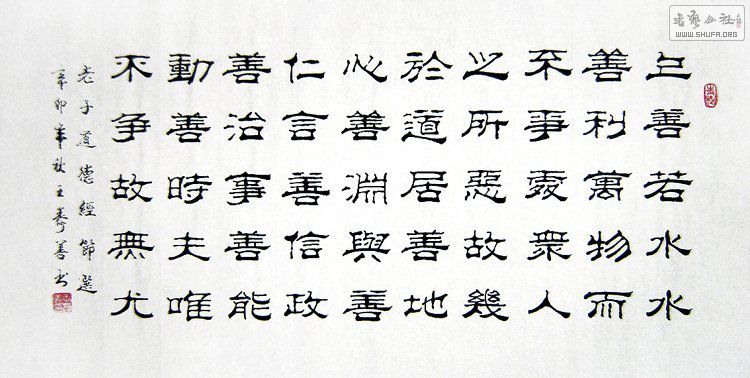 上善若水水
善利萬物而
不爭處衆人
之所惡故幾
於道居善地
心善淵與善
仁言善信政
善治事善能
動善時夫唯
不争故無尤
老子道德經節選
辛卯年秋王壽善书
书艺公社
WWW.SHUFA.ORG